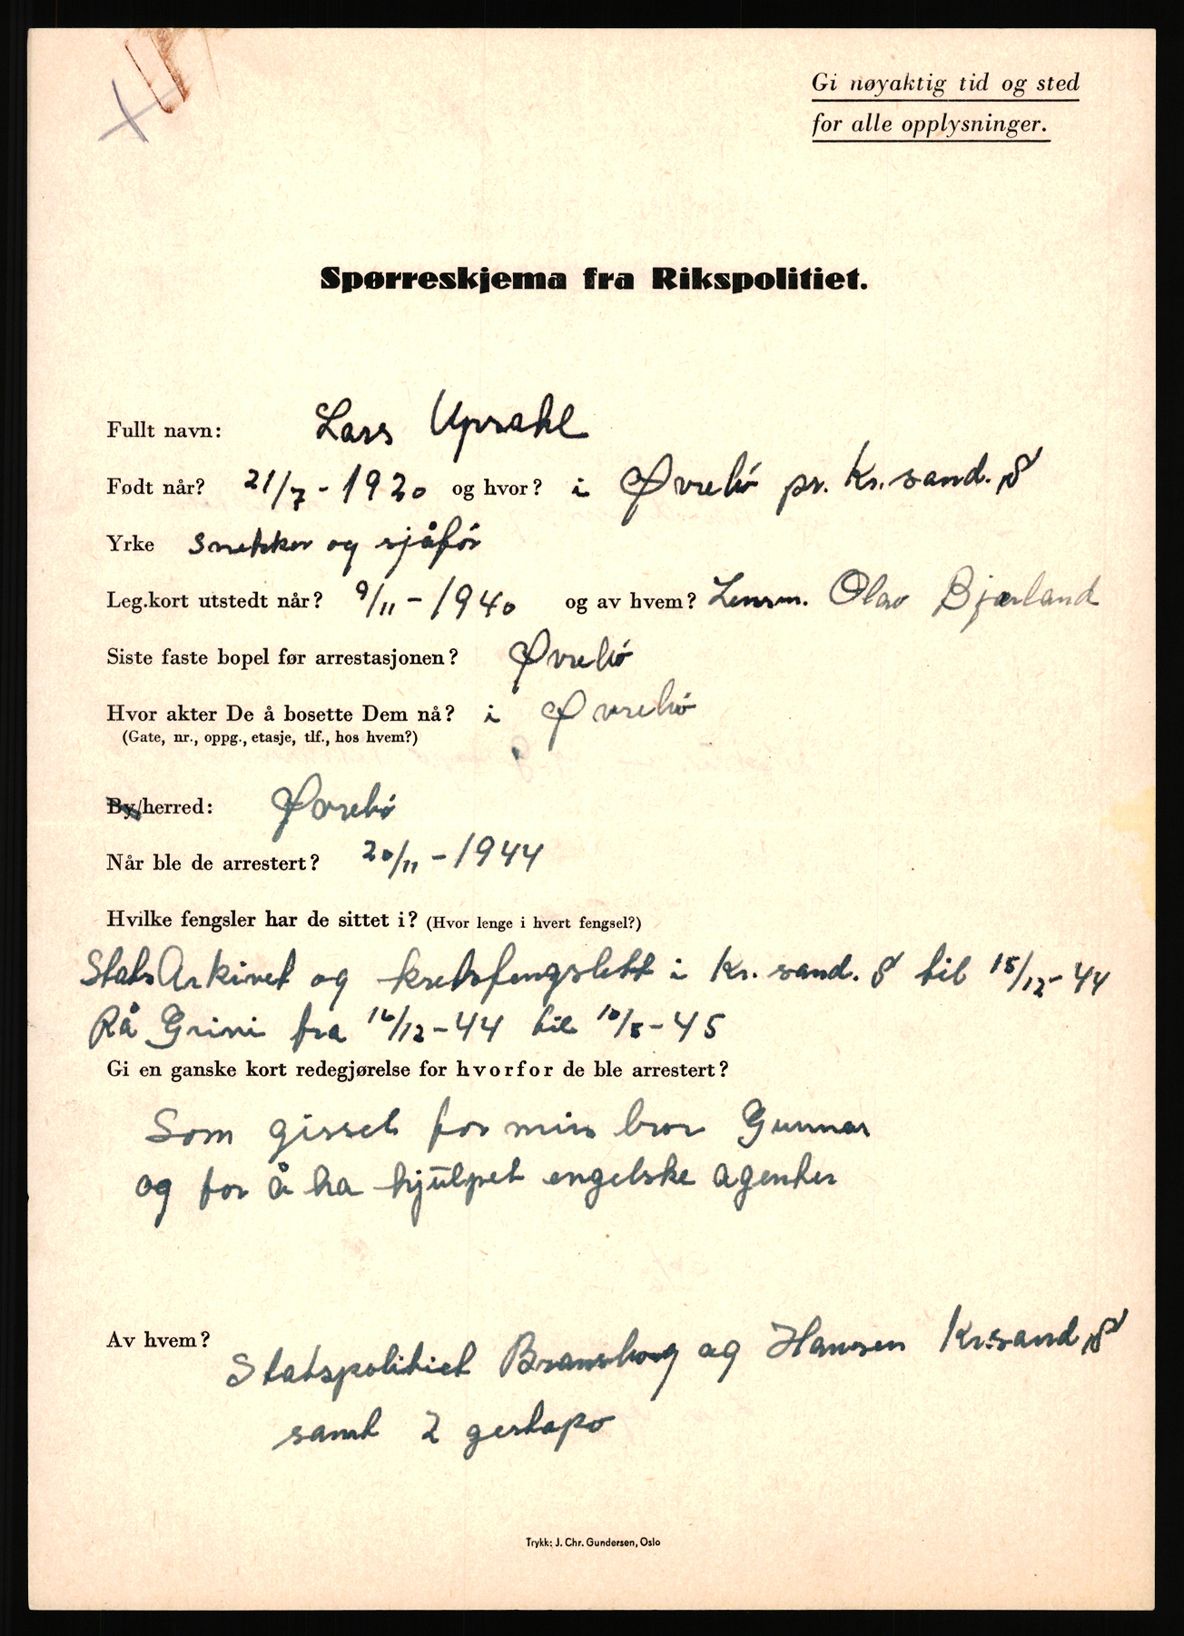 Gi nøyaktig tid og sted
for alle opplysninger.
Spørreskjema fra Rikspolitiet.
Fullt navn: Lars Upsahl
Født når? 21/7 - 1920 og hvor? i Øvrebö pr. Kr.sand. S
Yrke Snekker og sjåför
Leg.kort utstedt når? 9/11 - 1940 og av hvem? Lensm. Olav Bjørland
Siste faste bopel før arrestasjonen? Øvrebö
Hvor akter De å bosette Dem nå? i Øvrebö
(Gate, nr., oppg., etasje, tlf., hos hvem?)
By/herred: Øvrebö
Når ble de arrestert? 20/11 - 1944
Hvilke fengsler har de sittet i? (Hvor lenge i hvert fengsel?)
StatsArkivet og kretsfengslett i Kr. sand. S til 15/12-44
På Grini fra 16/12-44 til 10/5-45
Gi en ganske kort redegjørelse for hvorfor de ble arrestert?
Som gissel for min bror Gunnar
og for å ha hjulpet engelske agenter
Av hvem?
Statspolitiet og Hansen Kr.sand S
samt 2 gestapo
Trykk: J. Chr. Gundersen, Oslo